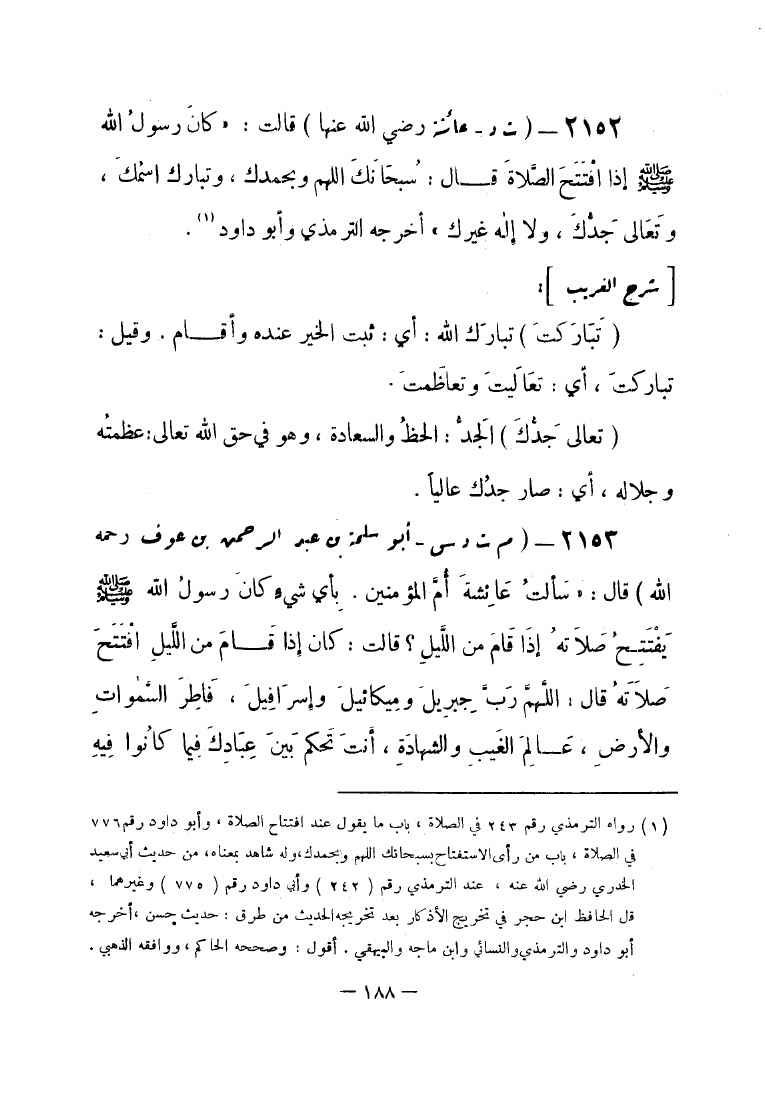 ٢١٥٢ – ( ت د - عائشة رضي الله عنها ) قالت : « كانَ رسولُ الله
ﷺ إذا افْتَتَحَ الصَّلاةَ قــال : سُبحَانَكَ اللهم وبحمدك ، وتبارك اسْمُكَ ،
وتَعَالى جَدُّكَ ، ولا إلٰه غيرك » أخرجه الترمذي وأبو داود (١) .
[ شرح الغريب ]:
( تَبَارَكتَ ) تبارَك الله : أي : ثبت الخير عنده وأقــام . وقيل :
تباركتَ ، أي : تعَاليتَ وتعاظَمت َ.
( تعالى جَدُّكَ ) الَجدُّ : الحظُ والسعادة ، وهو في حق الله تعالى:عظمتُه
وجلاله ، أي : صار جدُك عالياً .
٢١٥٣ – ( م ت د س - أبو سلمة بن عبد الرحمن بن عوف رحمه
الله ) قال : « سَألتُ عَائِشةَ أُمَّ المؤمنين . بأي شيءٍ كانَ رسولُ الله ﷺ
يَفْتَتِحُ صَلاَتهُ إذَا قَامَ من اللَّيلِ ؟ قالت : كان إذا قَــامَ من اللَّيلِ افْتَتَحَ
صَلاَتَهُ قال : اللَّهمَّ رَبَّ جِبريلَ وميكائيلَ وإسرَافِيلَ ، فَاطِرَ السَّمٰوات
والأرضِ ، عَــالِمَ الغَيبِ والشهادَةِ ، أنتَ تَحكم بَينَ عِبَادِكَ فيما كانُوا فِيهِ
(١) رواه الترمذي رقم ٢٤٣ في الصلاة ، باب ما يقول عند افتتاح الصلاة ، وأبو داود رقم ٧٧٦
في الصلاة ، باب من رأى الاستفتاح بسبحانك اللهم وبحمدك،وله شاهد بمعناه، من حديث أبي سعيد
الخدري رضي الله عنه ، عند الترمذي رقم ( ٢٤٢ ) وأبي داود رقم ( ٧٧٥ ) وغيرهما ،
قل الحافظ ابن حجر في تخريج الأذكار بعد تخريجه الحديث من طرق : حديث حسن ،أخرجه
أبو داود والترمذي والنسائي وابن ماجه والبيهقي . أقول : وصححه الحاكم ، ووافقه الذهبي .
– ١٨٨ –